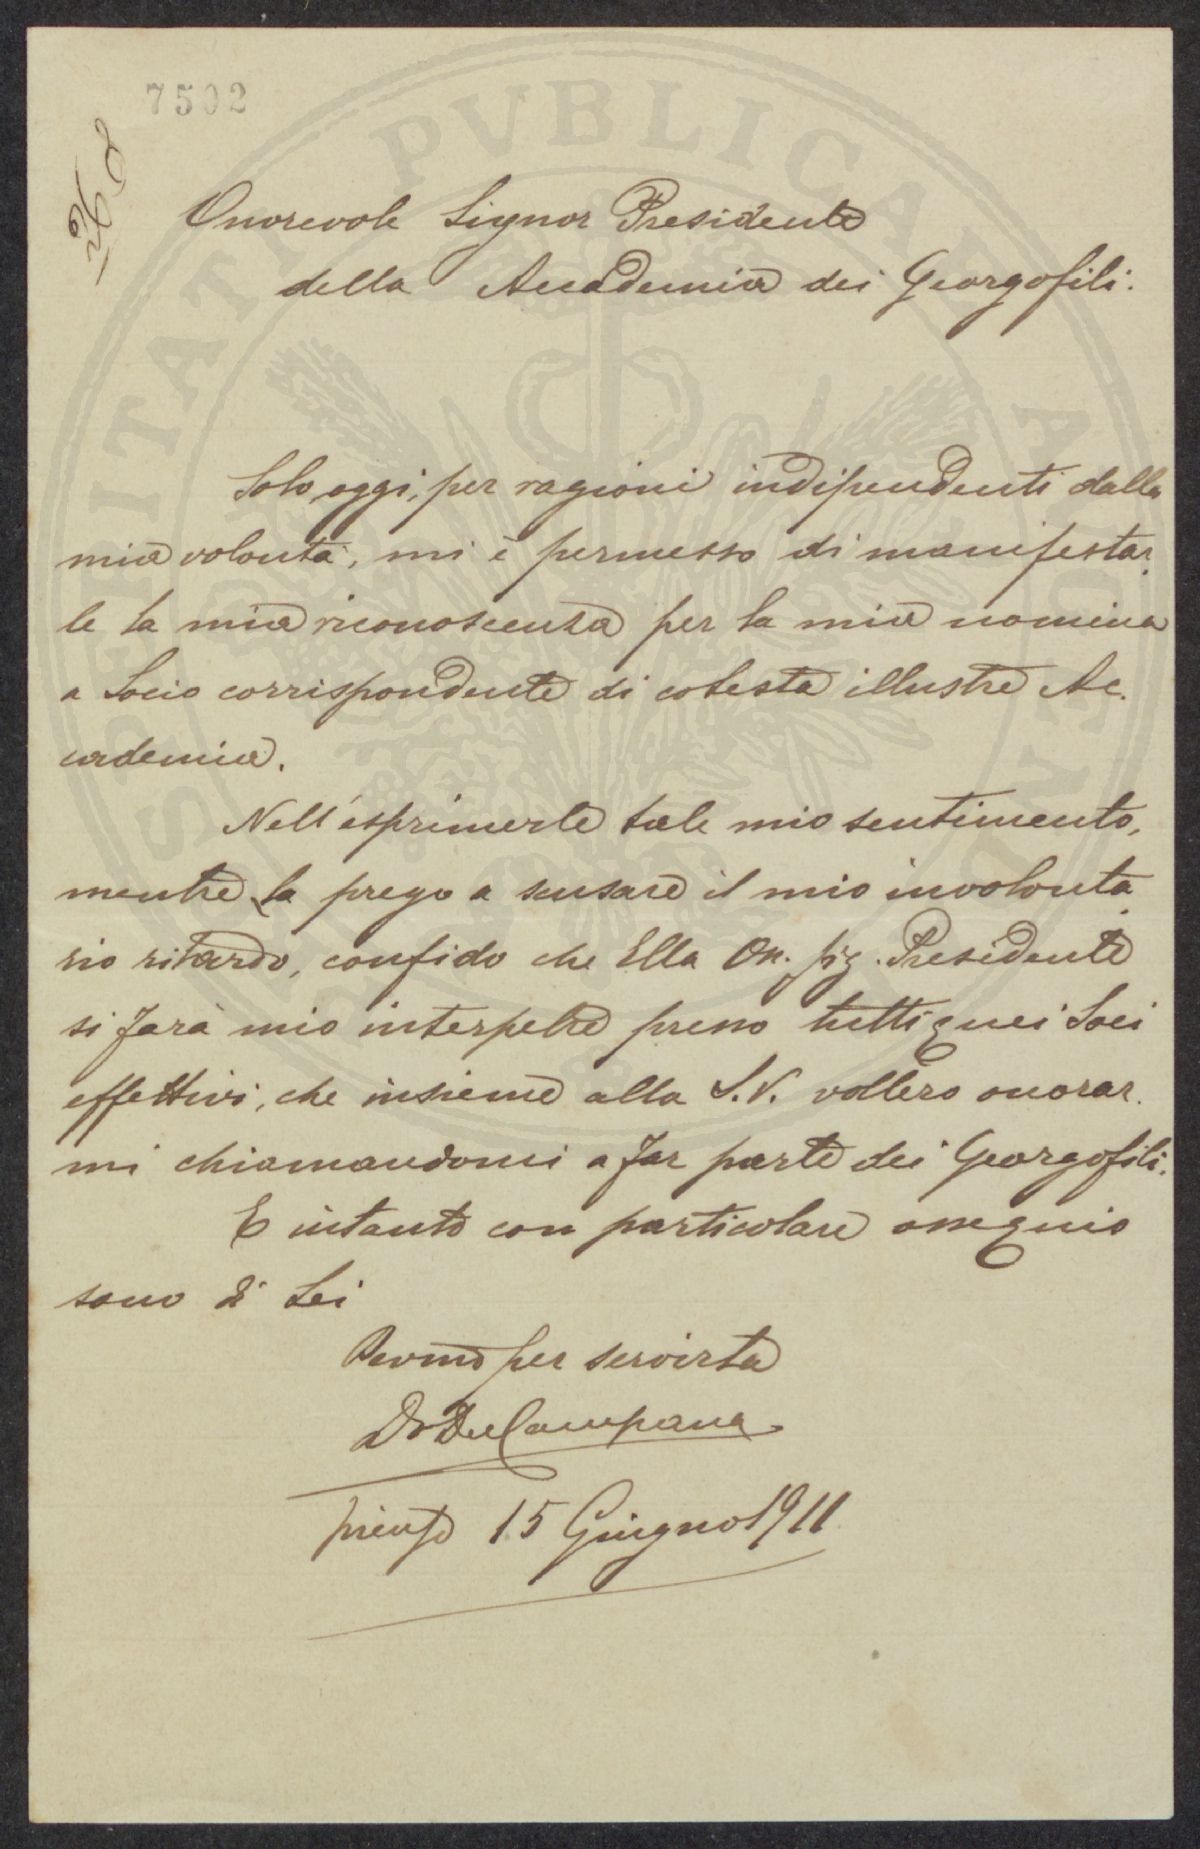 7502
268
Onorevole Signor Presidente
della Accademia dei Georgofili.
Solo oggi, per ragioni indipendenti dalla
mia volontà, mi è permesso di manifestar.
le la mia riconoscenza per la mia nomina
a Socio corrispondente di cotesta illustre Ac.
cademia.
Nell'esprimerle tale mio sentimento,
mentre La prego a scusare il mio involonta
rio ritardo, confido che Ella On. Sig. Presidente
si farà mio interpetre presso tutti quei Soci
effettivi, che insieme alla S.V. vollero onorar.
mi chiamandomi a far parte dei Georgofili.
E intanto con particolare ossequio
sono di Lei
Devmo per servirla
Dr Del Campana
Firenze 15 Giugno 1911